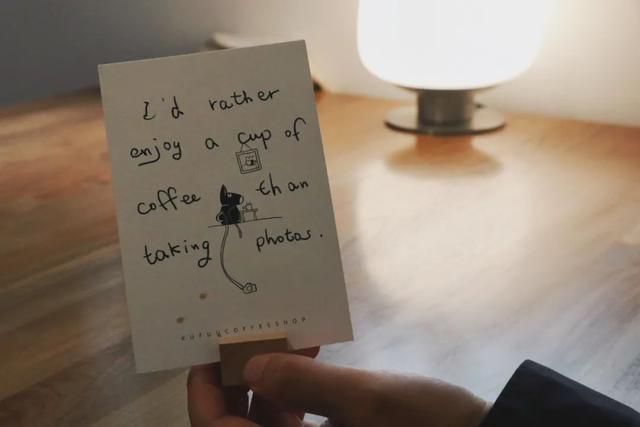 I'd rather
enjoy a cup of
coffee than
taking photos.
KUFUUCOFFEESHOP